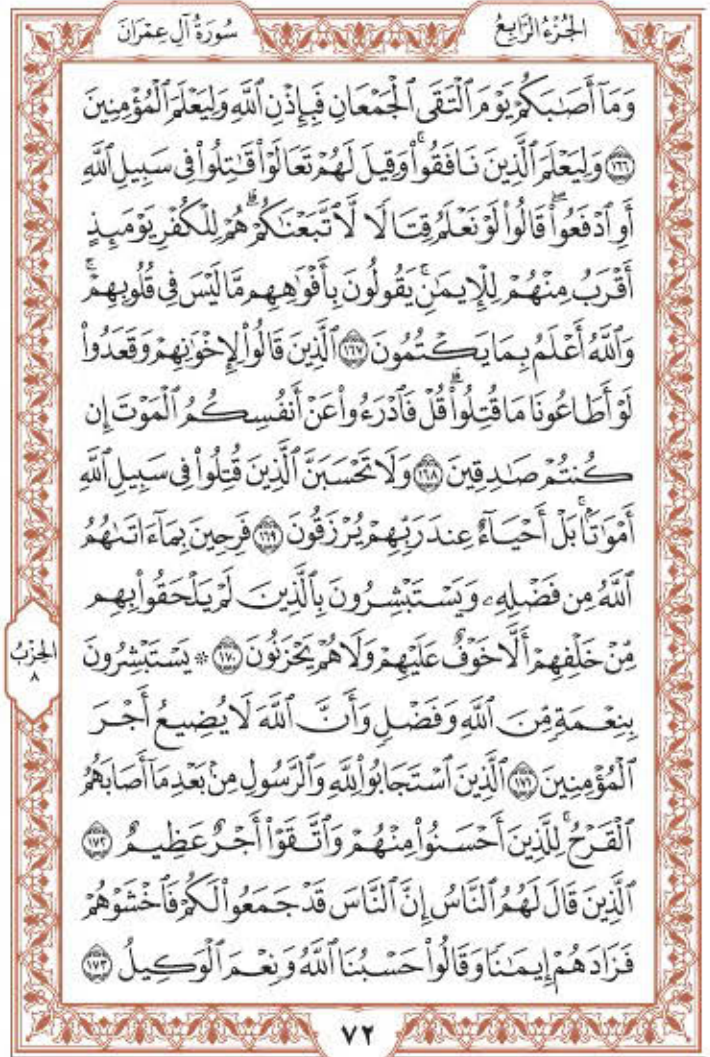 الجُزْءُ الرَّابِعُ
سُورَةُ آلِ عِمْرَانَ
وَمَآ أَصَٰبَكُمْ يَوْمَ ٱلْتَقَى ٱلْجَمْعَانِ فَبِإِذْنِ ٱللَّهِ وَلِيَعْلَمَ ٱلْمُؤْمِنِينَ
١٦٦ وَلِيَعْلَمَ ٱلَّذِينَ نَافَقُوا۟ۚ وَقِيلَ لَهُمْ تَعَالَوْا۟ قَٰتِلُوا۟ فِى سَبِيلِ ٱللَّهِ
أَوِ ٱدْفَعُوا۟ۖ قَالُوا۟ لَوْ نَعْلَمُ قِتَالًا لَّٱتَّبَعْنَٰكُمْۗ هُمْ لِلْكُفْرِ يَوْمَئِذٍ
أَقْرَبُ مِنْهُمْ لِلْإِيمَٰنِۚ يَقُولُونَ بِأَفْوَٰهِهِم مَّا لَيْسَ فِى قُلُوبِهِمْۚ
وَٱللَّهُ أَعْلَمُ بِمَا يَكْتُمُونَ ١٦٧ ٱلَّذِينَ قَالُوا۟ لِإِخْوَٰنِهِمْ وَقَعَدُوا۟
لَوْ أَطَاعُونَا مَا قُتِلُوا۟ۗ قُلْ فَٱدْرَءُوا۟ عَنْ أَنفُسِكُمُ ٱلْمَوْتَ إِن
كُنتُمْ صَٰدِقِينَ ١٦٨ وَلَا تَحْسَبَنَّ ٱلَّذِينَ قُتِلُوا۟ فِى سَبِيلِ ٱللَّهِ
أَمْوَٰتًۢاۚ بَلْ أَحْيَآءٌ عِندَ رَبِّهِمْ يُرْزَقُونَ ١٦٩ فَرِحِينَ بِمَآ ءَاتَىٰهُمُ
ٱللَّهُ مِن فَضْلِهِۦ وَيَسْتَبْشِرُونَ بِٱلَّذِينَ لَمْ يَلْحَقُوا۟ بِهِم
مِّنْ خَلْفِهِمْ أَلَّا خَوْفٌ عَلَيْهِمْ وَلَا هُمْ يَحْزَنُونَ ١٧٠ ۞ يَسْتَبْشِرُونَ
الحِزْبُ
٨
بِنِعْمَةٍ مِّنَ ٱللَّهِ وَفَضْلٍ وَأَنَّ ٱللَّهَ لَا يُضِيعُ أَجْرَ
ٱلْمُؤْمِنِينَ ١٧١ ٱلَّذِينَ ٱسْتَجَابُوا۟ لِلَّهِ وَٱلرَّسُولِ مِنۢ بَعْدِ مَآ أَصَابَهُمُ
ٱلْقَرْحُۚ لِلَّذِينَ أَحْسَنُوا۟ مِنْهُمْ وَٱتَّقَوْا۟ أَجْرٌ عَظِيمٌ ١٧٢
ٱلَّذِينَ قَالَ لَهُمُ ٱلنَّاسُ إِنَّ ٱلنَّاسَ قَدْ جَمَعُوا۟ لَكُمْ فَٱخْشَوْهُمْ
فَزَادَهُمْ إِيمَٰنًا وَقَالُوا۟ حَسْبُنَا ٱللَّهُ وَنِعْمَ ٱلْوَكِيلُ ١٧٣
٧٢